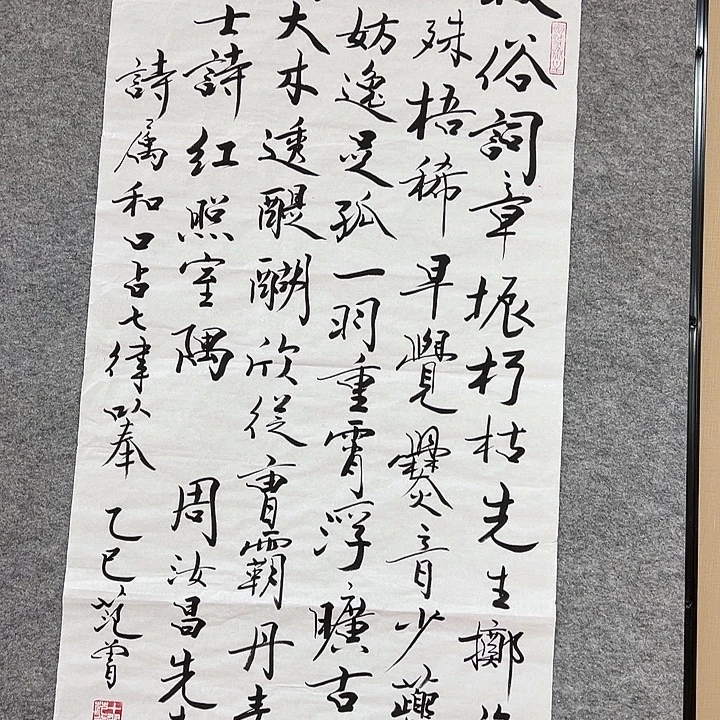 俗詞章振朽枯先生擲
殊梧稀早覺爨音少
妨逸足孤一羽重霄浮曠古
大木透醍醐欣從曹霸丹青
士詩紅照室隅周汝昌先
詩属和口占七律以奉乙巳范曾